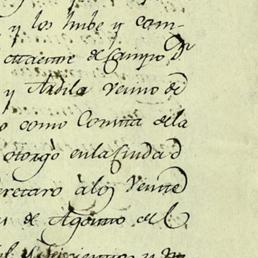 y los hube y com-
de Campo Dn
y Ardila vecino de
o como Consta de la
otorgó en la Ciudad
eretaro à los Veinte
de Agosto del